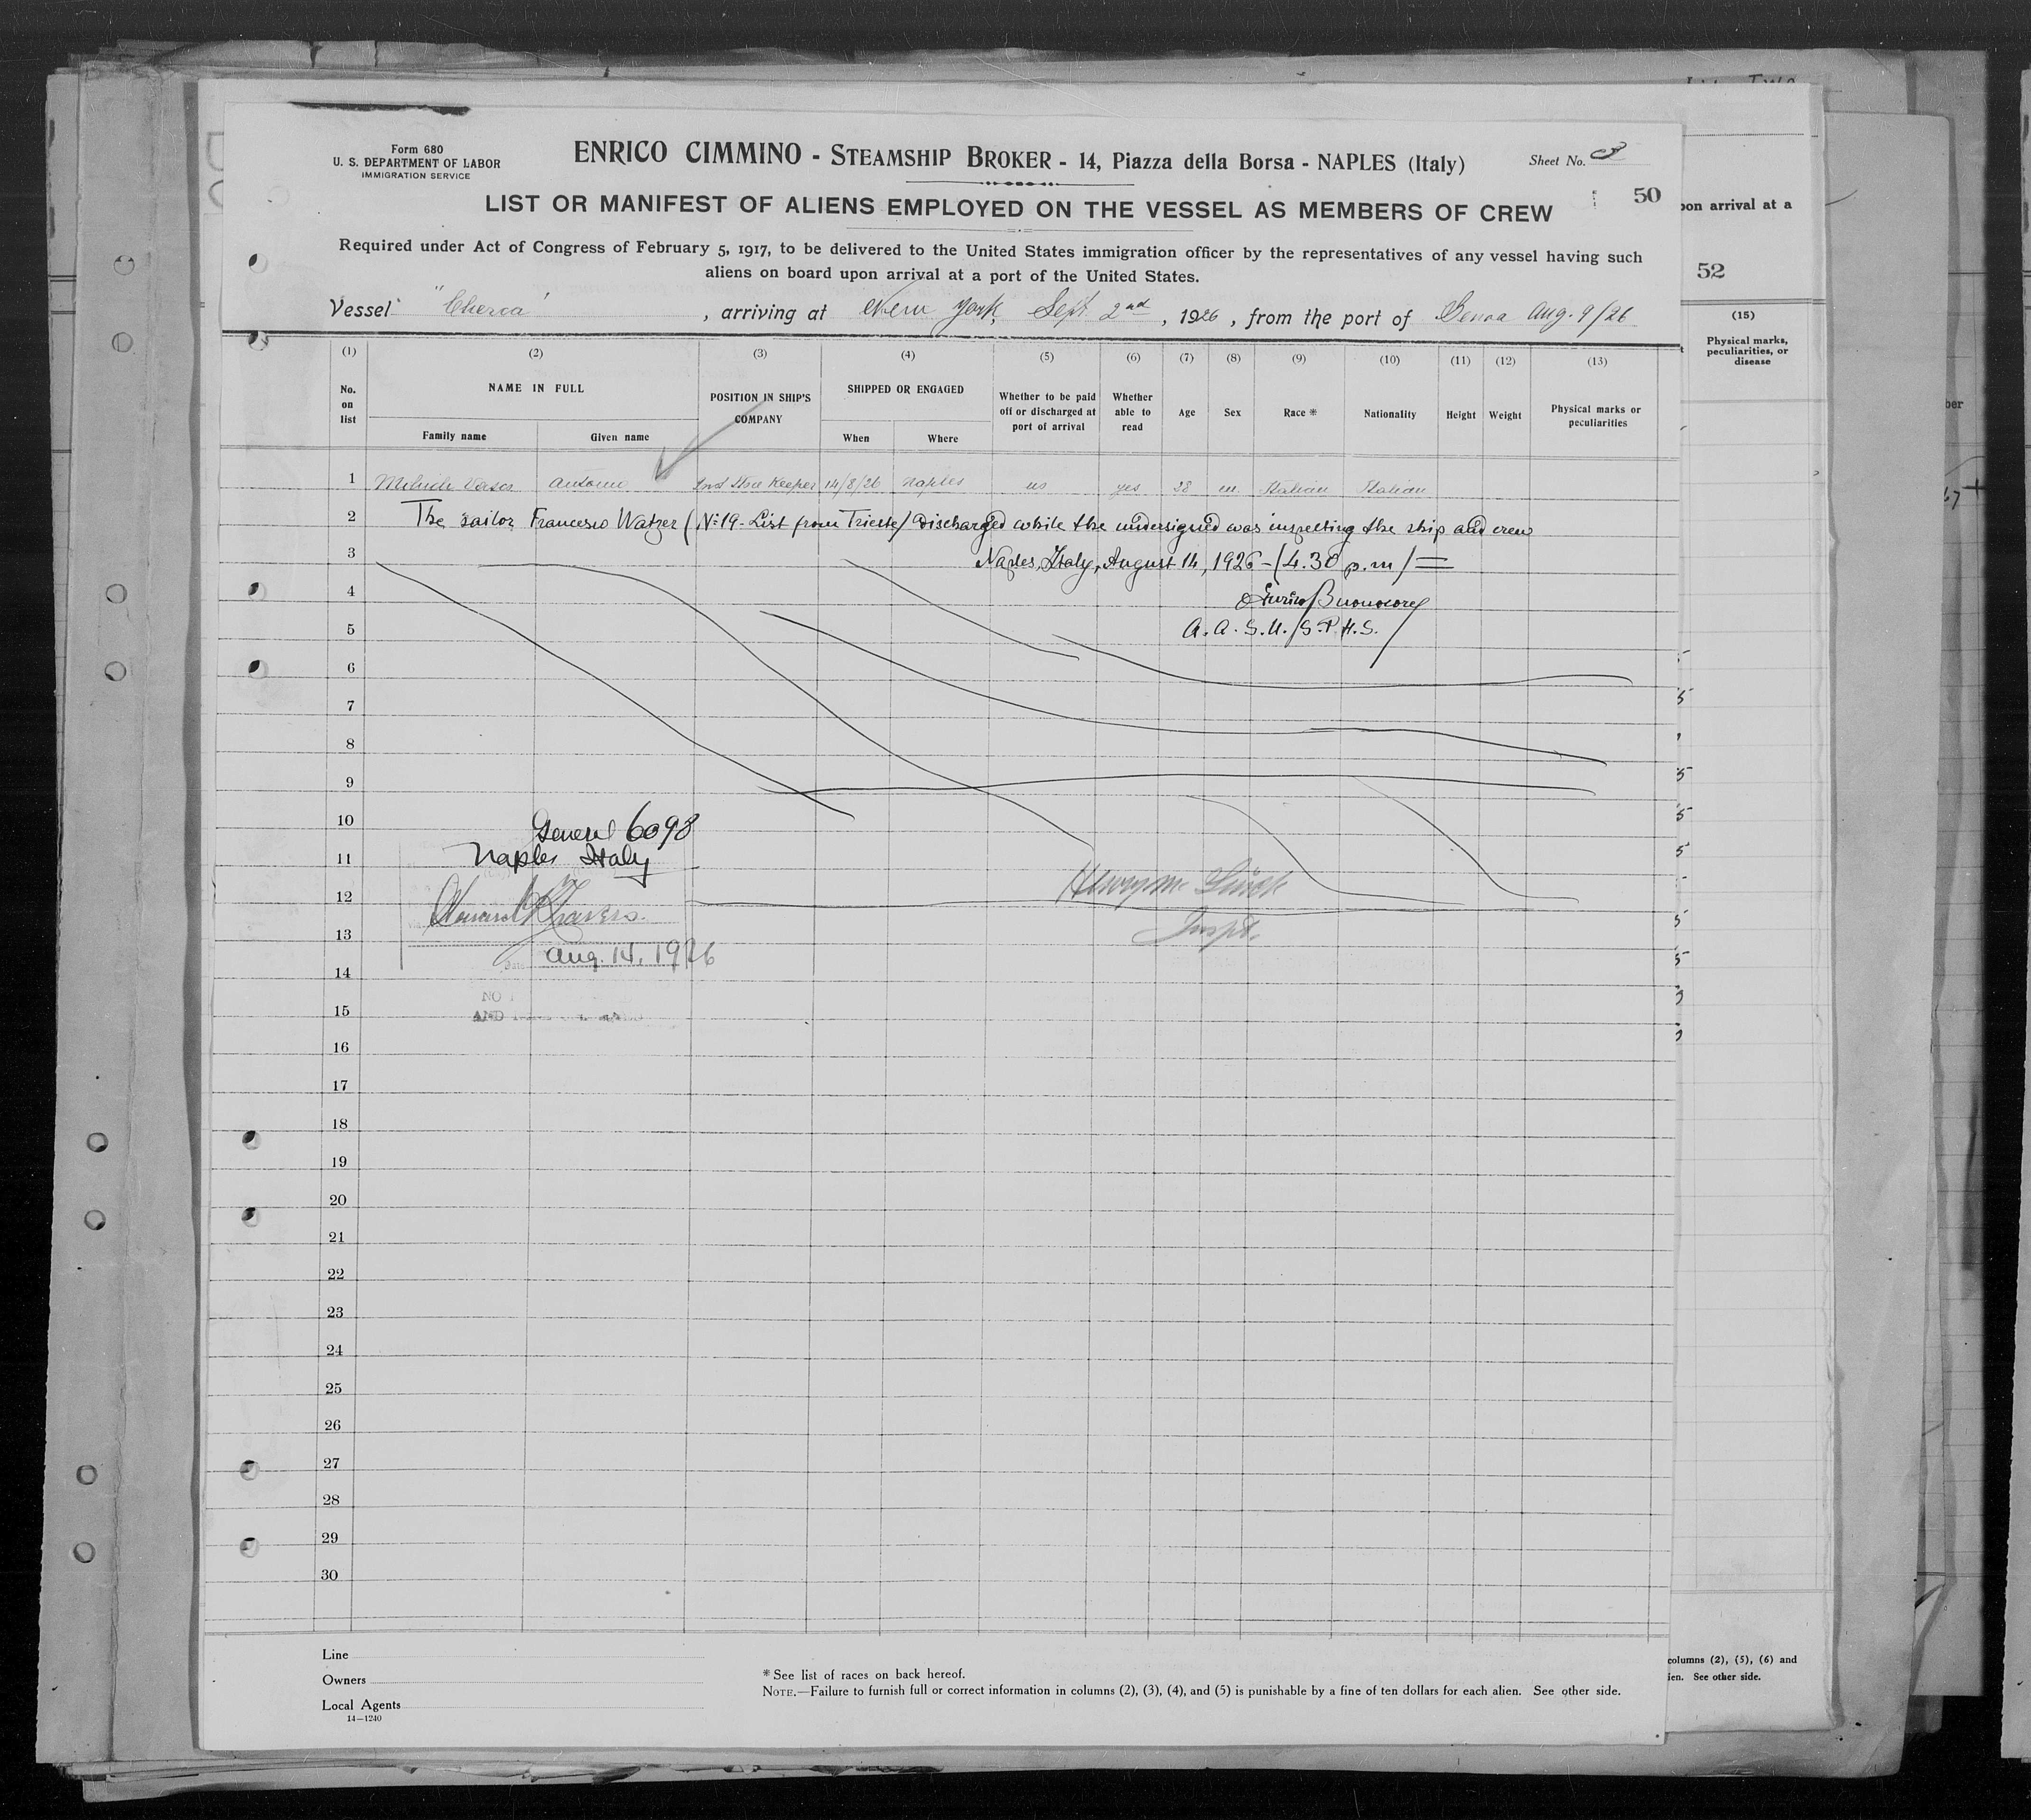 Form 680
U. S. DEPARTMENT OF LABOR
IMMIGRATION SERVICE
ENRICO CIMMINO - STEAMSHIP BROKER - 14, Piazza della Borsa - NAPLES (Italy)
Sheet No. 3
50
LIST OR MANIFEST OF ALIENS EMPLOYED ON THE VESSEL AS MEMBERS OF CREW
Required under Act of Congress of February 5, 1917, to be delivered to the United States immigration officer by the representatives of any vessel having such
aliens on board upon arrival at a port of the United States.
Vessel "Cherca", arriving at New York, Sept 2nd, 1926, from the port of Genoa Aug. 9/26
(1) (2) (3) (4) (5) (6) (7) (8) (9) (10) (11) (12) (13)
No. on list
NAME IN FULL
Family name
Given name
POSITION IN SHIP'S COMPANY
SHIPPED OR ENGAGED
When
Where
Whether to be paid off or discharged at port of arrival
Whether able to read
Age
Sex
Race *
Nationality
Height
Weight
Physical marks or peculiarities
1 Antonio Store Keeper 14/8/26 Naples no yes 28 m. Italian Italian
2 The sailor Francesco Watzer (No 19 - List from Trieste) discharged while the undersigned was inspecting the ship and crew
3 Naples, Italy, August 14, 1926 - (4.30 p.m) =
4 Enrico Buonocore
5 A. A. S. U. S. P. H. S.
6
7
8
9
10 General 6098
11 Naples Italy
12
Inspr.
13
Date Aug. 14, 1926
14
15
16
17
18
19
20
21
22
23
24
25
26
27
28
29
30
Line
Owners
Local Agents
14—1240
* See list of races on back hereof.
NOTE.—Failure to furnish full or correct information in columns (2), (3), (4), and (5) is punishable by a fine of ten dollars for each alien. See other side.
pon arrival at a
52
(15)
Physical marks, peculiarities, or disease
columns (2), (5), (6) and
ien. See other side.